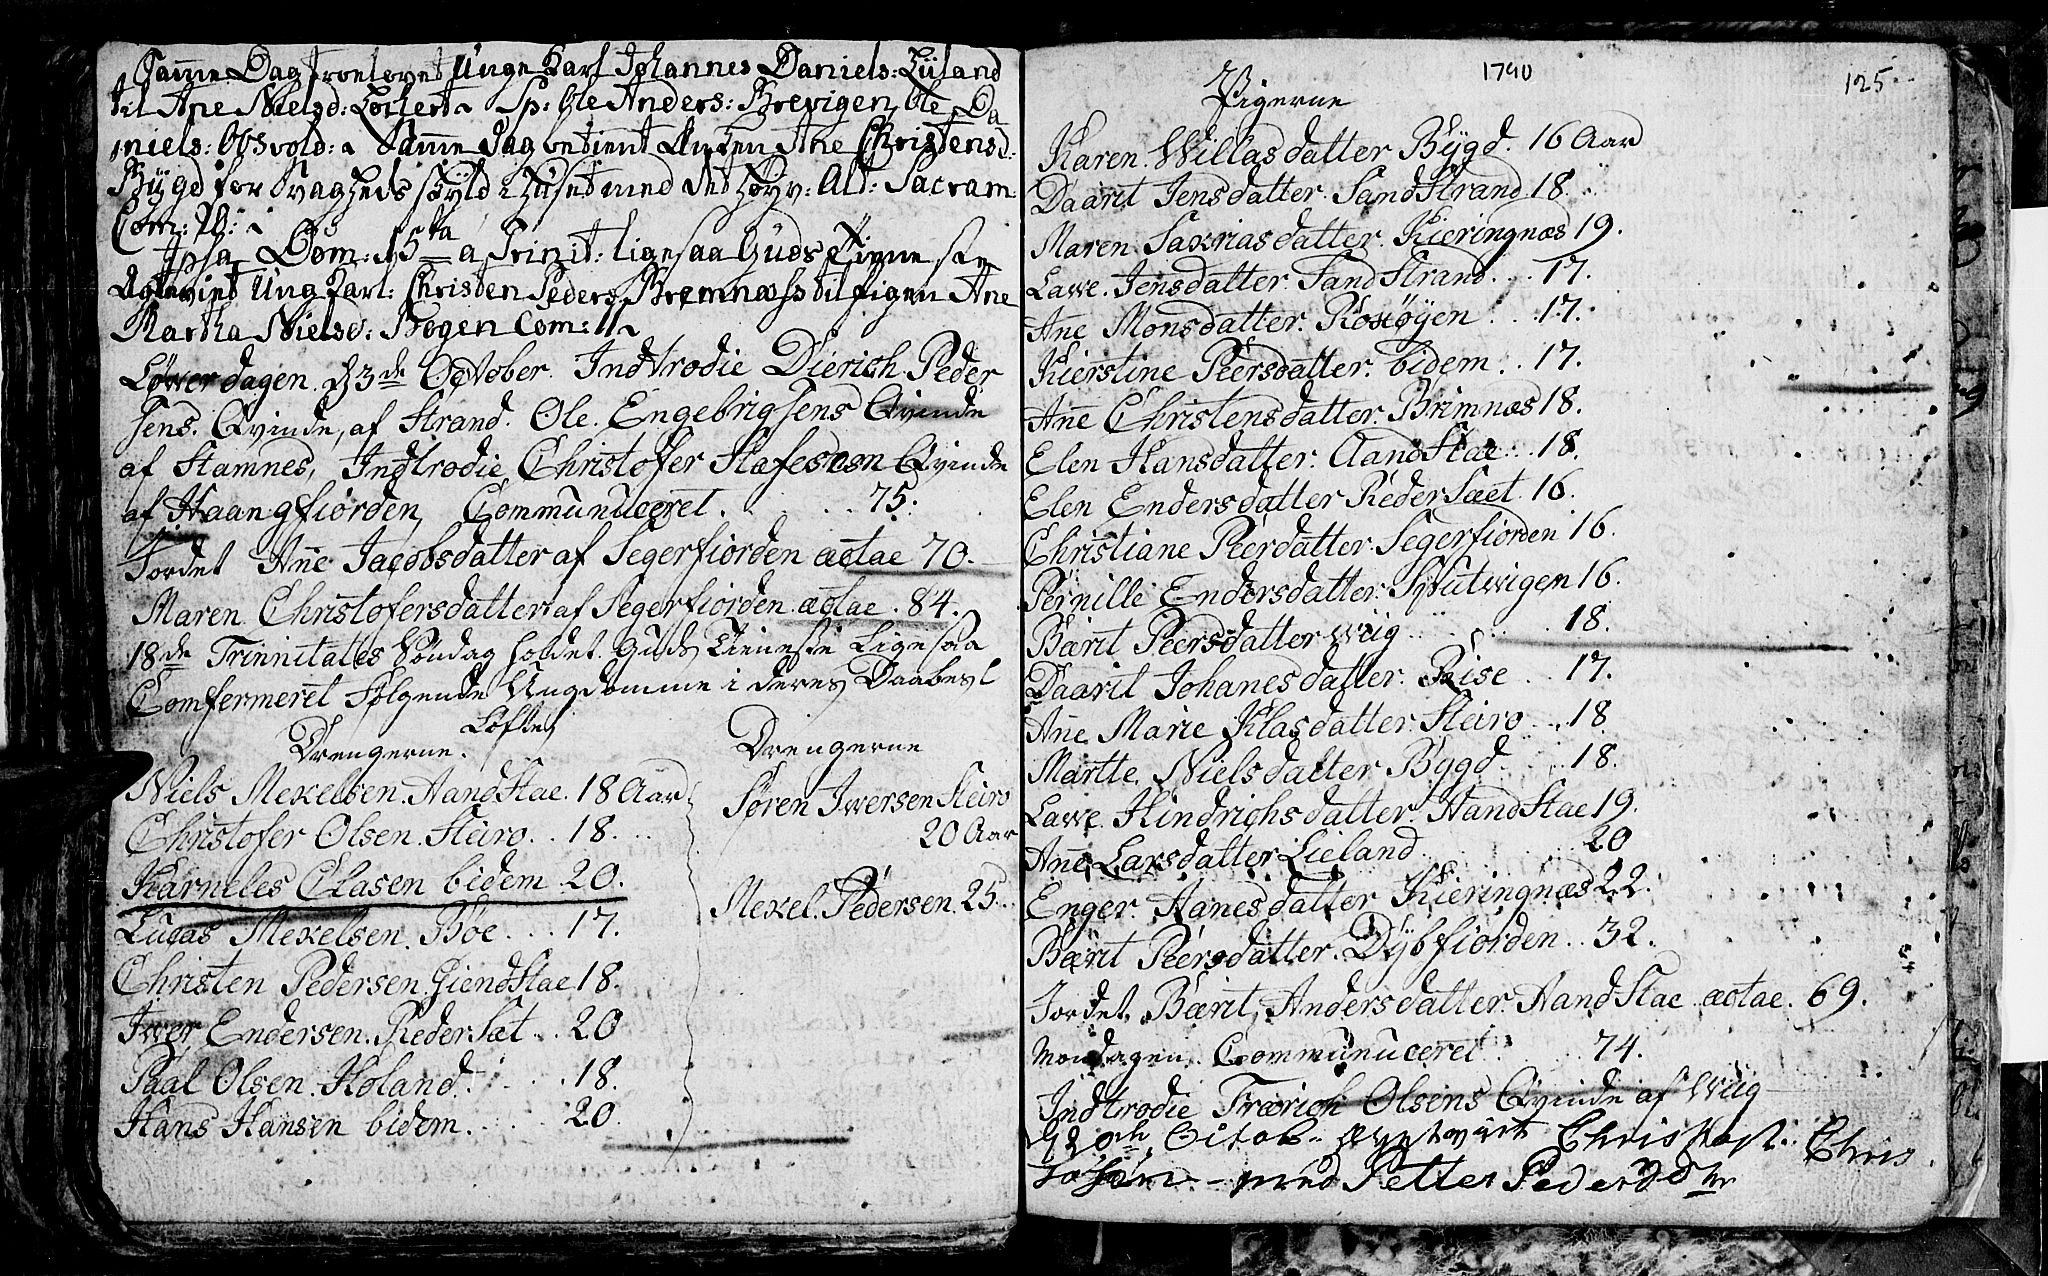 Samme Dag troelovet Unge Karl Johannes Daniels: Lüland
til Ane Nielsd: Sp: Ole Anders: Brevigen, Ole Da
niels: Samme dag betient Ane Christensd:
Bygd for Svagheds skyld i Huset med det høyv: Alt: Sacram:
Com:
Dom: 15ta a Trinit: ligesaa Guds Tieneste
Ung Karl: Christen Peders: Bremnæss til Pigen Ane
Martha Nielsd: Bogen Com: 11
Løverdagen d 3de October. Indtrodie Dierich Peder
sens. Qvinde, af Strand. Ole. Engebrigsens Qvinde
af Stamnes, Indtrodie Christofer Qvinde
af Haangfiorden, Communuceret. 75.
Jordet Ane Jacobsdatter af Segerfiorden æotae 70.
Maren Christofersdatter af Segerfiorden æotae. 84.
18de Trinnitates Søndag holdet Guds Tieneste Ligesaa
Comfermeret følgende Ungdomme i deres Daabes
Løfte,
Drengerne.
Niels Mekelsen. HandStae. 18 Aar
Christofer Olsen. Steiro. 18.
Karneles Clasen bidem 20.
Lucas Mekelsen. Böe. 17.
Christen Pedersen. GiendStae 18.
Iwer Endersen. RederSæt. 20
Paal Olsen. Holand. 18.
Hans Hansen bidem. 20.
Drengerne
Søren Iwersen Steiro
20 Aar
Mekel. Pedersen. 25.
1790
125
Pigerne
Karen Willasdatter Bÿgd. 16 Aar
Daarit Jensdatter SandStrand 18.
Maren Sakriasdatter. Kieringnæs 19.
Lawe. Jensdatter SandStrand. 17.
Ane Monsdatter. 17.
Kierstine Peersdatter. bidem. 17.
Ane Christensdatter. Brimnæs 18.
Elen Hansdatter. AandStae. 18.
Elen Endersdatter RederSæt. 16.
Christiane Peerdatter. Segerfiorden 16.
Pernille Endersdatter. 16
Bærit Peersdatter Wiig 18.
Daarit Johanesdatter. Reise 17.
Ane Marie Klasdatter. Steiro 18
Martte Nielsdatter Bygd 18.
Lawe. Hindrichsdatter. HandStae 19.
Ane Larsdatter Lieland 20
Enger. Hanesdatter Kieringnæs 22.
Bærit Peersdatter. Dÿbfiorden. 32.
Jordet. Bærit, Andersdatter. HandStae æotae. 69.
Mondagen. Communuceret 74.
Indtrodie Frærich Olsens Qvinde af Wiig
Octob: Chris
med Petter